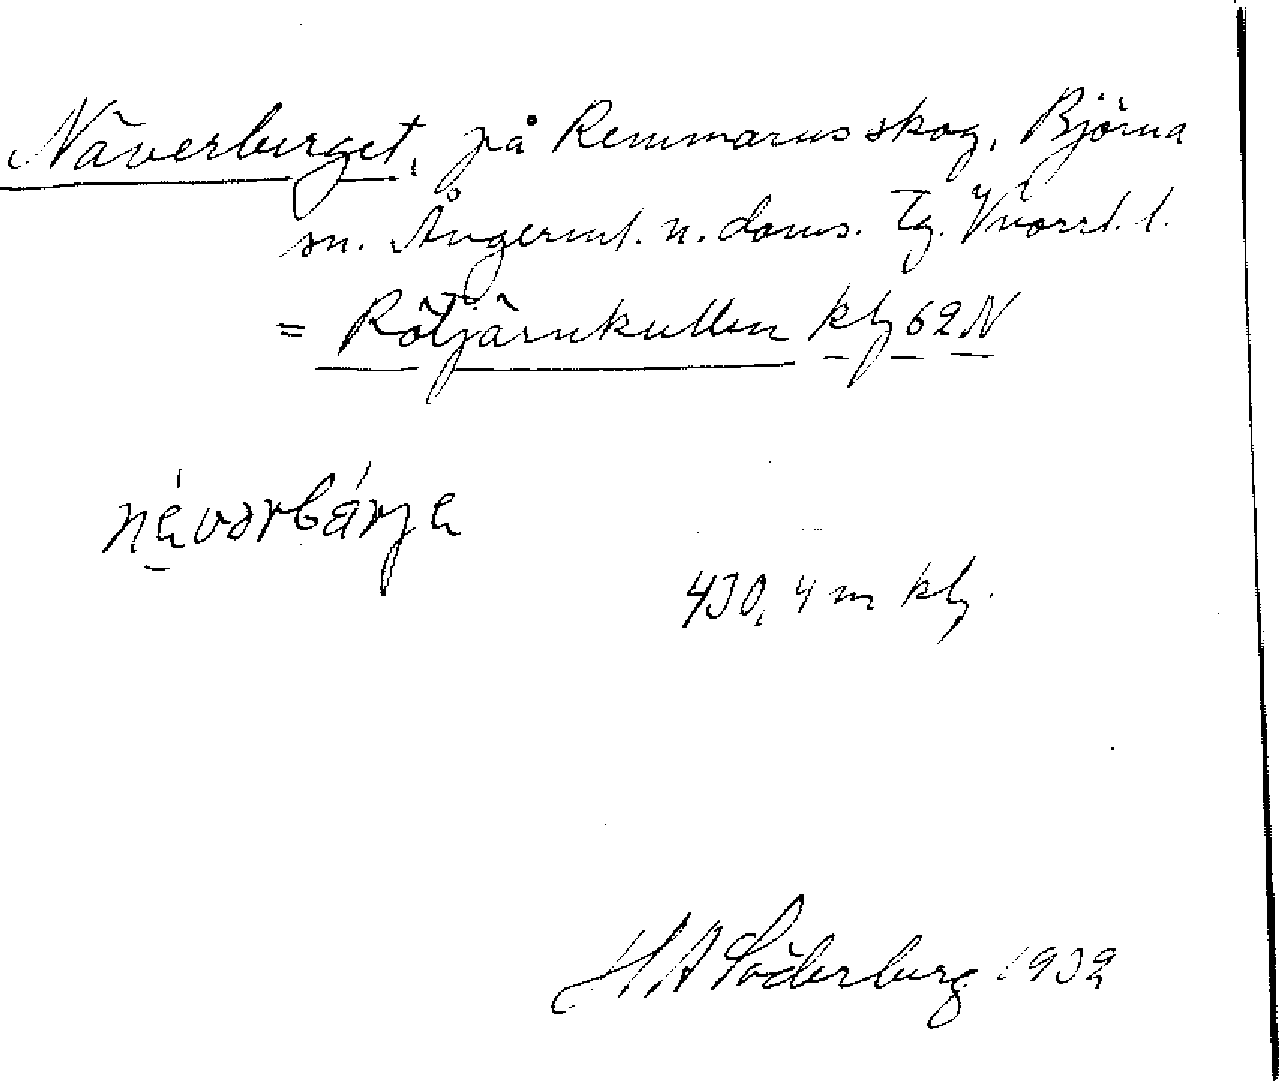 Näverberget, på Remmarns skog, Björna
sn. Ångerml. n. doms. Tg. Vnorrl. l.
= Rötjärnkullen kbl 62 N
430,4 m kbl.
H A Söderberg 1932